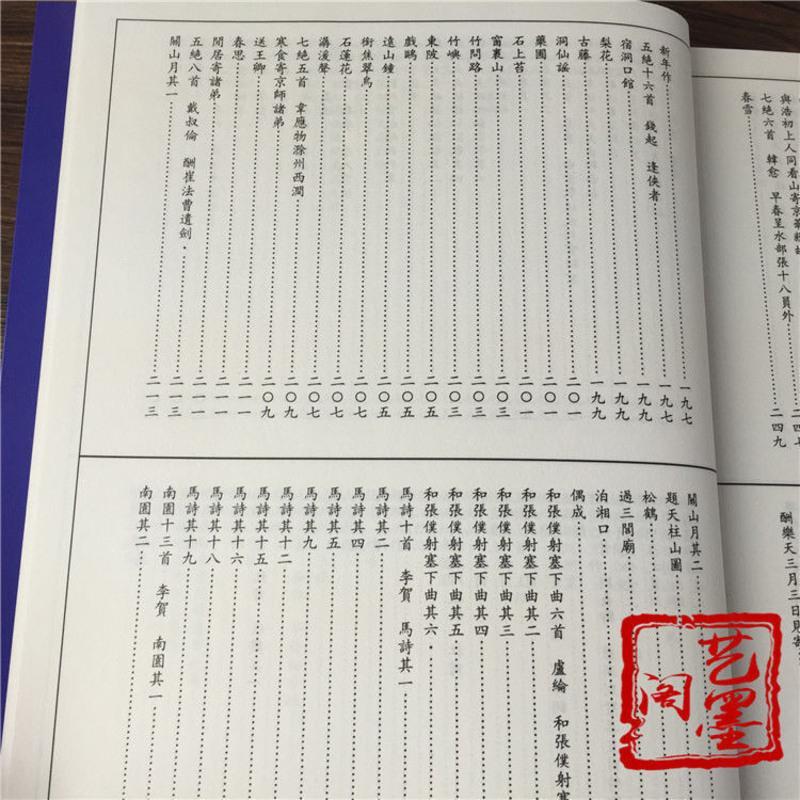 與浩初上人同看山寄京華親故
七絕六首 韓愈 早春呈水部張十八員外
春雪 二四九
酬樂天三月三日見寄
新年作 一九七
五絕十六首 錢起 逢俠者 一九七
宿洞口館 一九九
梨花 一九九
古藤 一九九
洞仙謠 二〇一
藥圃 二〇一
石上苔 二〇一
窗裏山 二〇一
竹間路 二〇三
竹嶼 二〇三
東陂 二〇五
戲鷗 二〇五
遠山鐘 二〇五
銜焦翠鳥 二〇七
石蓮花 二〇七
潺湲聲 二〇七
七絕五首 韋應物滁州西澗 二〇九
寒食寄京師諸弟 二〇九
送王卿 二一一
春思 二一一
閒居寄諸弟 二一一
五絕八首 戴叔倫 酬崔法曹遺劍 二一三
關山月其一 二一三
關山月其二
題天柱山圖
松鶴
過三閭廟
泊湘口
偶成
和張僕射塞下曲六首 盧綸 和張僕射塞
和張僕射塞下曲其二
和張僕射塞下曲其三
和張僕射塞下曲其四
和張僕射塞下曲其五
和張僕射塞下曲其六
馬詩十首 李賀 馬詩其一
馬詩其二
馬詩其四
馬詩其五
馬詩其九
馬詩其十二
馬詩其十五
馬詩其十六
馬詩其十八
馬詩其十九
南園十三首 李賀 南園其一
南園其二
艺墨阁